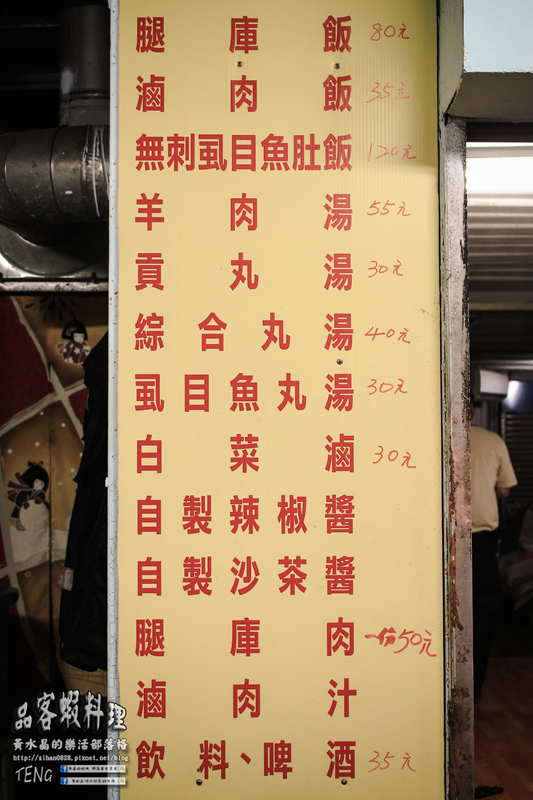 腿庫飯 80元
滷肉飯 35元
無刺虱目魚肚飯 120元
羊肉湯 55元
貢丸湯 30元
綜合丸湯 40元
虱目魚丸湯 30元
白菜滷 30元
自製辣椒醬
自製沙茶醬
腿庫肉 一份50元
滷肉汁
飲料、啤酒 35元
品客蝦料理
黃水晶的樂活部落格
http://sihan0828.pixnet.net/blog
TENG